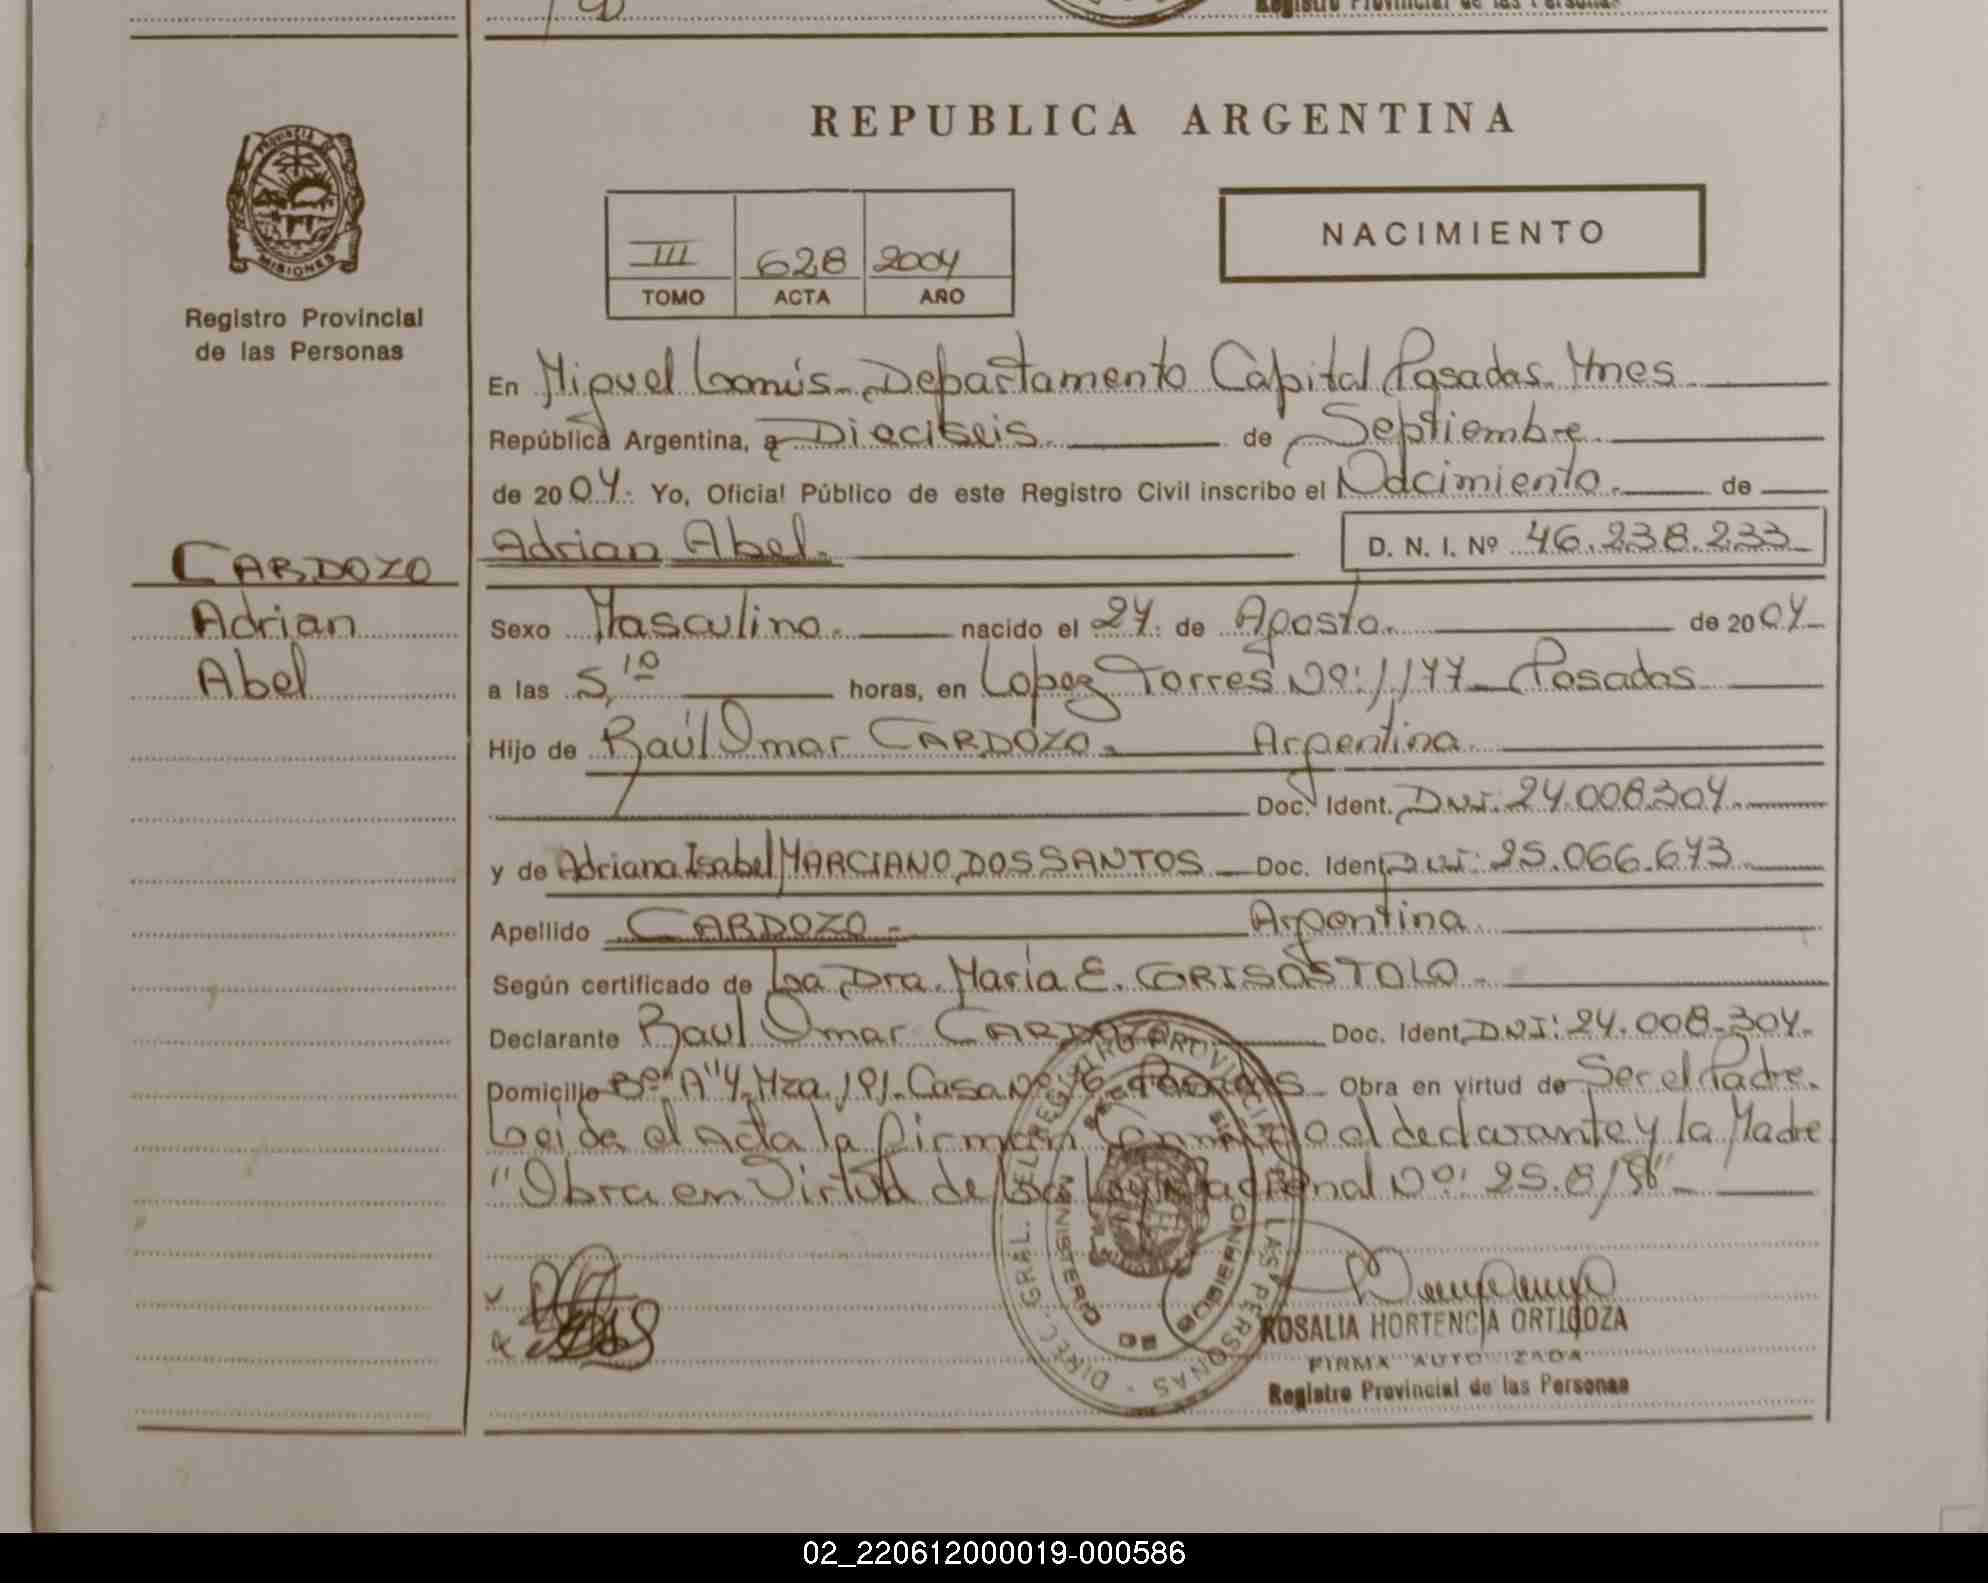 Registro Provincial de las Personas
PROVINCIA DE
MISIONES
Registro Provincial
de las Personas
CARDOZO
Adrian
Abel
REPUBLICA ARGENTINA
III 628 2004
TOMO ACTA AÑO
NACIMIENTO
En Miguel Lanús. Departamento Capital Posadas. Mnes
República Argentina, a Dieciseis. de Septiembre.
de 2004. Yo, Oficial Público de este Registro Civil inscribo el Nacimiento. de
Adrian Abel. D. N. I. Nº 46.238.233
Sexo Masculino. nacido el 24. de Agosto. de 2004
a las 5,10 horas, en Lopez Torres Nº: 1177 Posadas
Hijo de Raúl Omar CARDOZO. Argentina
Doc. Ident. DNI: 24.008.304.
y de Adriana Isabel MARCIANO DOS SANTOS Doc. Ident. DNI: 25.066.673
Apellido CARDOZO. Argentina
Según certificado de La Dra. María E. GRISOSTOLO.
Declarante Raul Omar CARDOZO Doc. Ident. DNI: 24.008.304.
Domicilio Bº "A" 4. Mza. 191. Casa Nº 16 Posadas Obra en virtud de Ser el Padre.
Leida el Acta la firman Conmigo el declarante y la Madre
"Obra en Virtud de La Ley Nacional Nº: 25.8/58"
DIREC. GRAL. DEL REGISTRO PROVINCIAL DE LAS PERSONAS
MINISTERIO DE GOBIERNO
ROSALIA HORTENCIA ORTIGOZA
FIRMA AUTORIZADA
Registro Provincial de las Personas
02_220612000019-000586